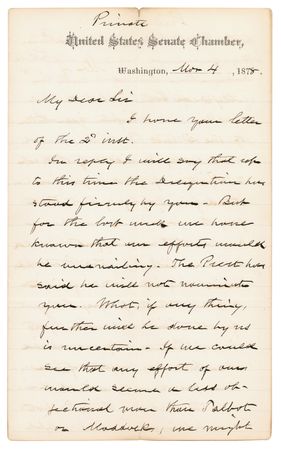 Private
United States Senate Chamber,
Washington, Mar 4, 1878.
My Dear Sir
I have your letter
of the 2d inst.
In reply I will say that up
to this time the Delegation has
stood firmly by you - But
for the last week we have
known that our efforts would
be unavailing. The Prest has
said he will not nominate
you. What, if any thing,
further will be done by us
is uncertain - If we could
see that any effort of ours
would secure a less ob-
jectional man than Talbot
or Maddock, we might